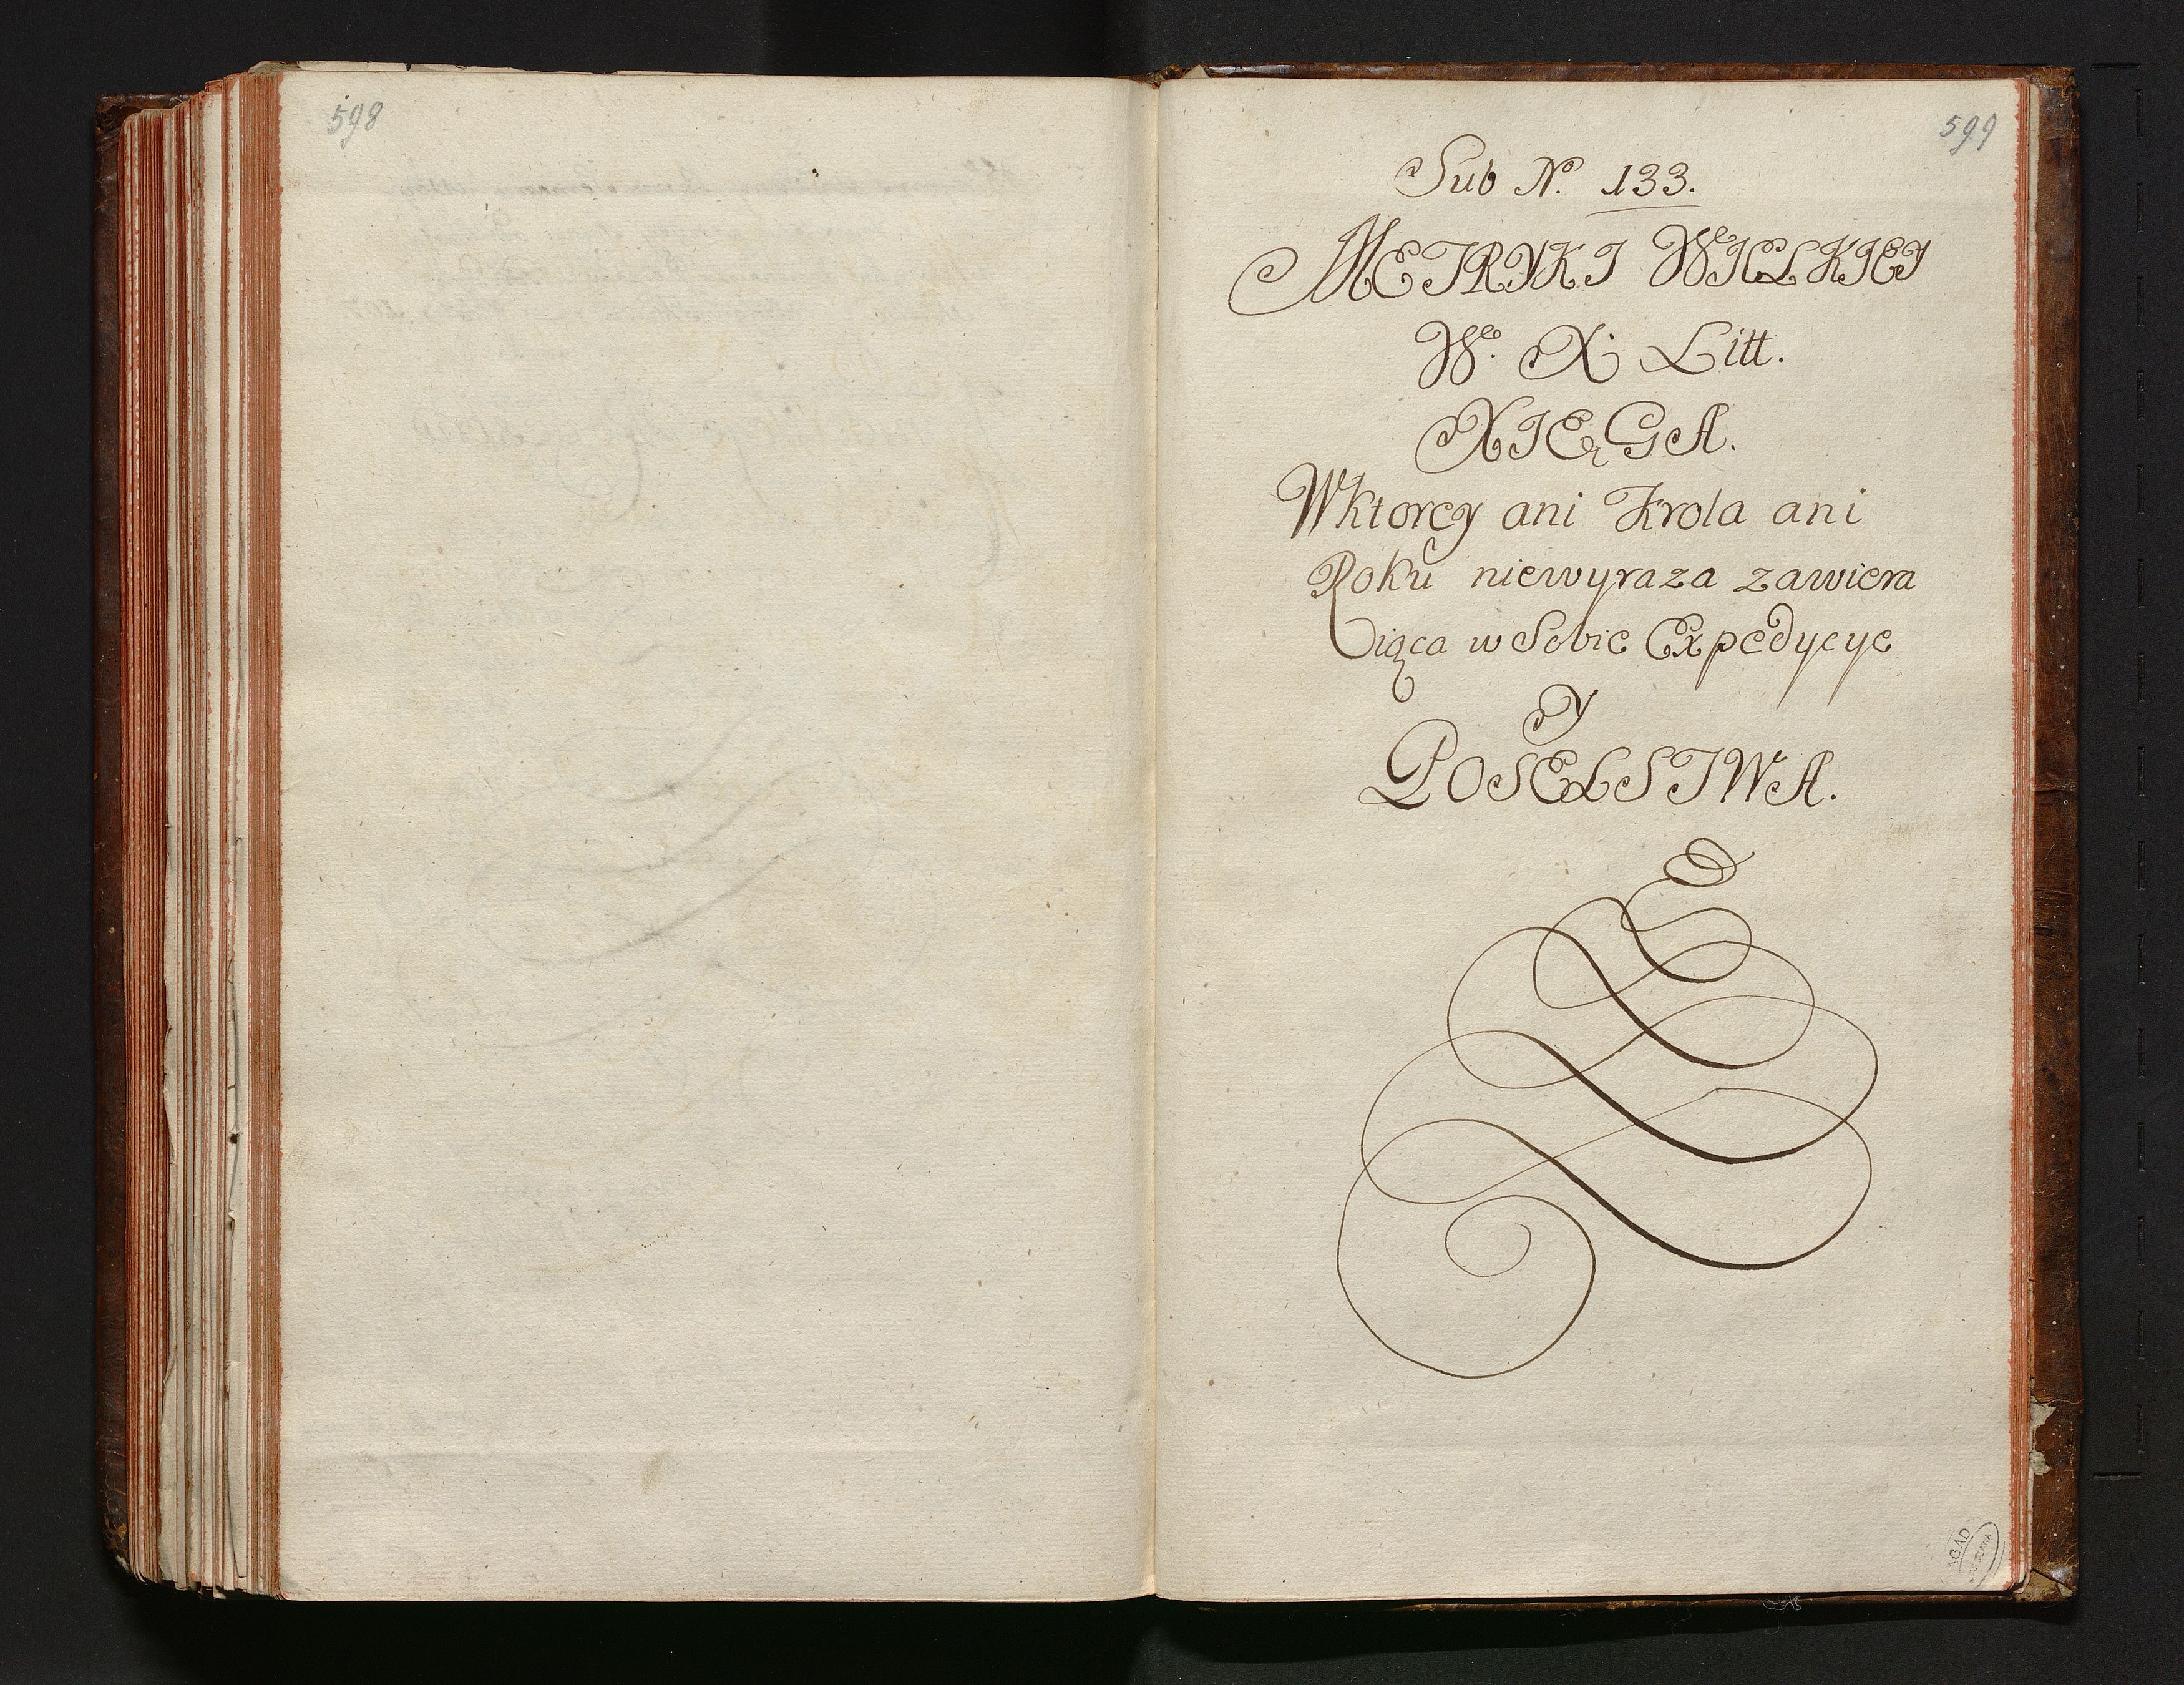 598
599
Sub No. 133.
METRYKI WIELKIEY
Wo. X. Litt.
XIĘGA.
Wktorey ani Krola ani
Roku niewyraza zawiera
iąca w Sobie Expedycye
Y
POSELSTWA.
AGAD